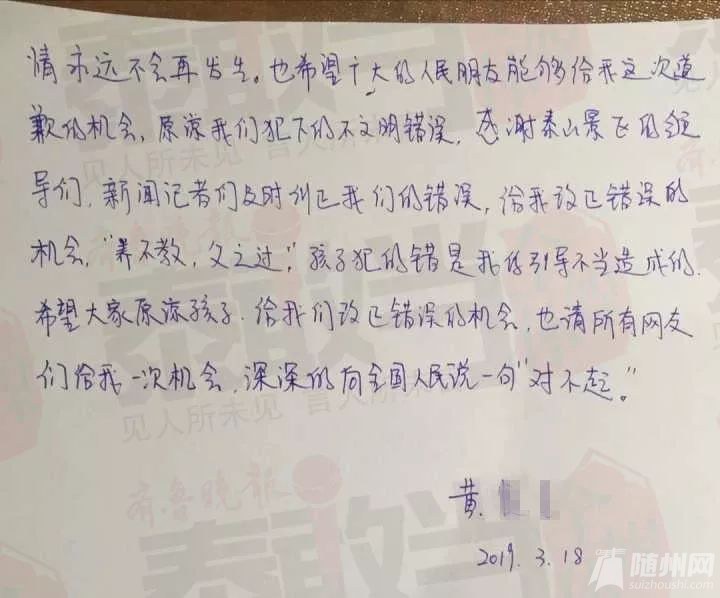 情永远不会再发生。也希望广大的人民朋友能够给我这次道
歉的机会,原谅我们犯下的不文明错误,感谢泰山景区的领
导们,新闻记者们及时纠正我们的错误,给我改正错误的
机会,“养不教,父之过”,孩子犯的错是我的引导不当造成的.
希望大家原谅孩子.给我们改正错误的机会,也请所有网友
们给我一次机会,深深的向全国人民说一句“对不起”。
黄
2019.3.18
齐鲁晚报
泰敢当
见人所未见 言人所未
见人所未见 言人所未
齐鲁晚报
泰敢当
随州网
suizhoushi.com